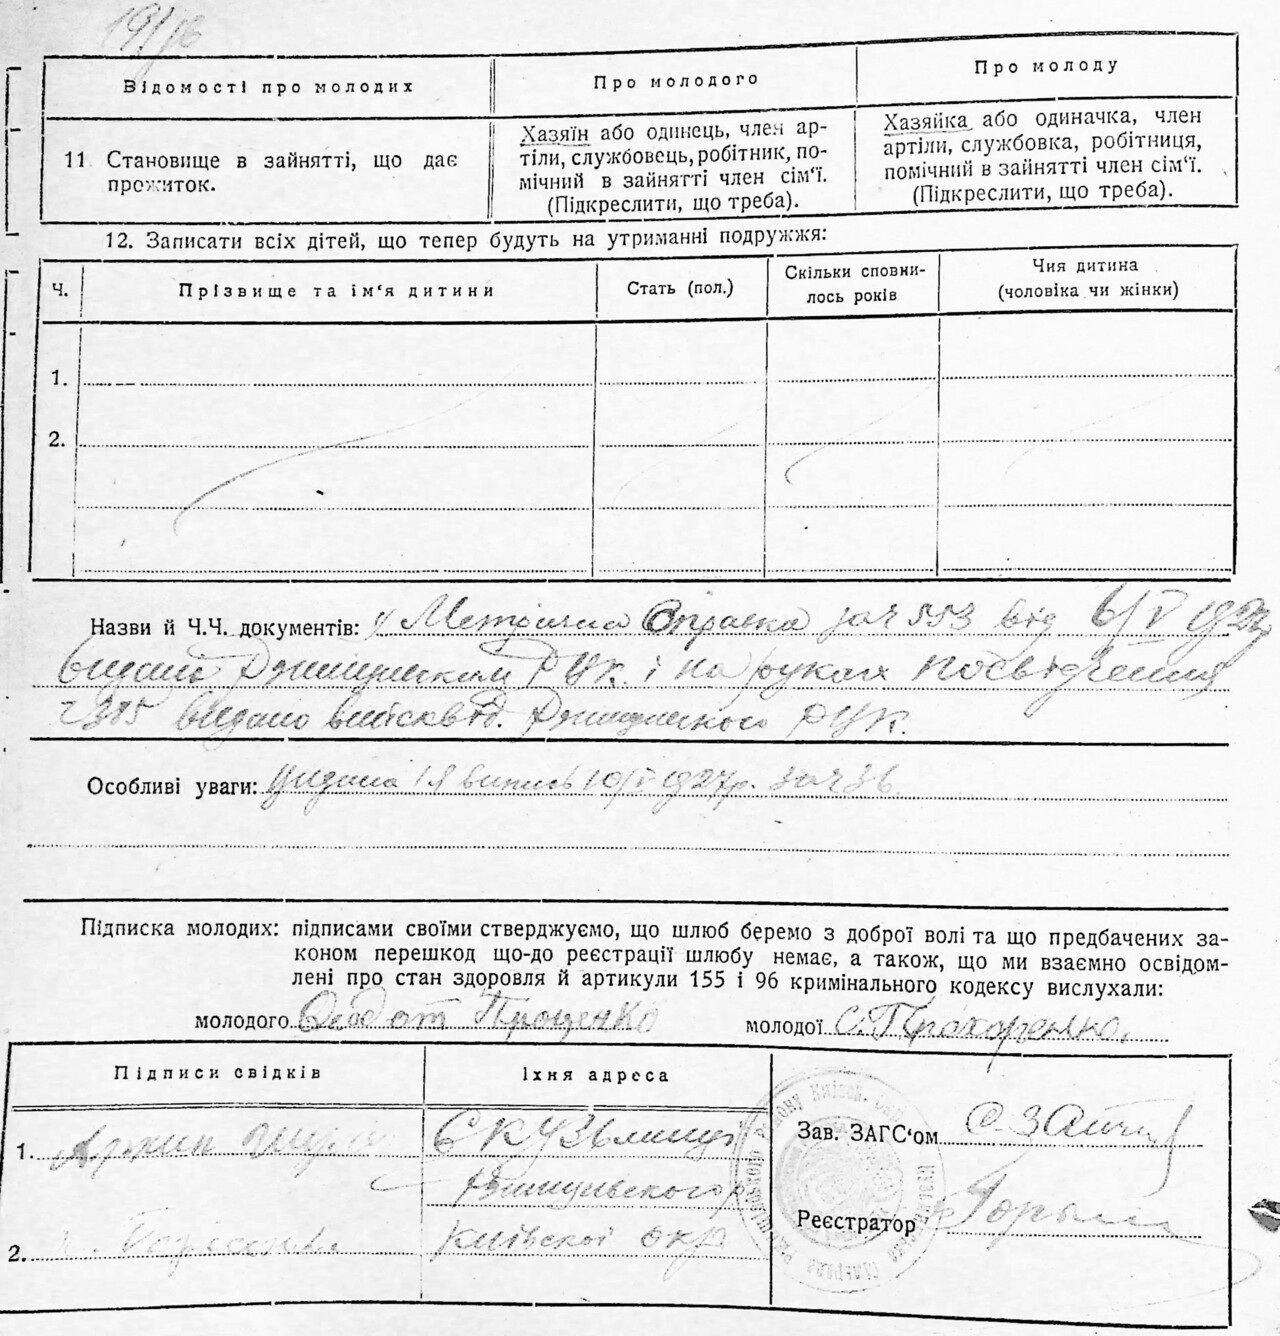 Відомості про молодих
Про молодого
Про молоду
11 Становище в зайнятті, що дає
прожиток.
Хазяїн або одинець, член ар-
тіли, службовець, робітник, по-
мічний в зайнятті член сім'ї.
(Підкреслити, що треба).
Хазяйка або одиначка, член
артіли, службовка, робітниця,
помічний в зайнятті член сім'ї.
(Підкреслити, що треба).
12. Записати всіх дітей, що тепер будуть на утриманні подружжя:
Ч.
Прізвище та ім'я дитини
Стать (пол.)
Скільки сповни-
лось років
Чия дитина
(чоловіка чи жінки)
1.
2.
Назви й Ч.Ч. документів: Метрична Справка за ч 553 від 6/V 1927
видано РИК. і на руках посвідчення
ч 385 видано РИК.
Особливі уваги: Видана випись 10/V 1927р. за ч 36
Підписка молодих: підписами своїми стверджуємо, що шлюб беремо з доброї волі та що предбачених за-
коном перешкод що-до реєстрації шлюбу немає, а також, що ми взаємно освідом-
лені про стан здоровля й артикули 155 і 96 кримінального кодексу вислухали:
молодого Феодот Проценко молодої С. Прохоренко.
Підписи свідків
Їхня адреса
1. Архип
Київської окр
2.
Зав. ЗАГС'ом
Реєстратор